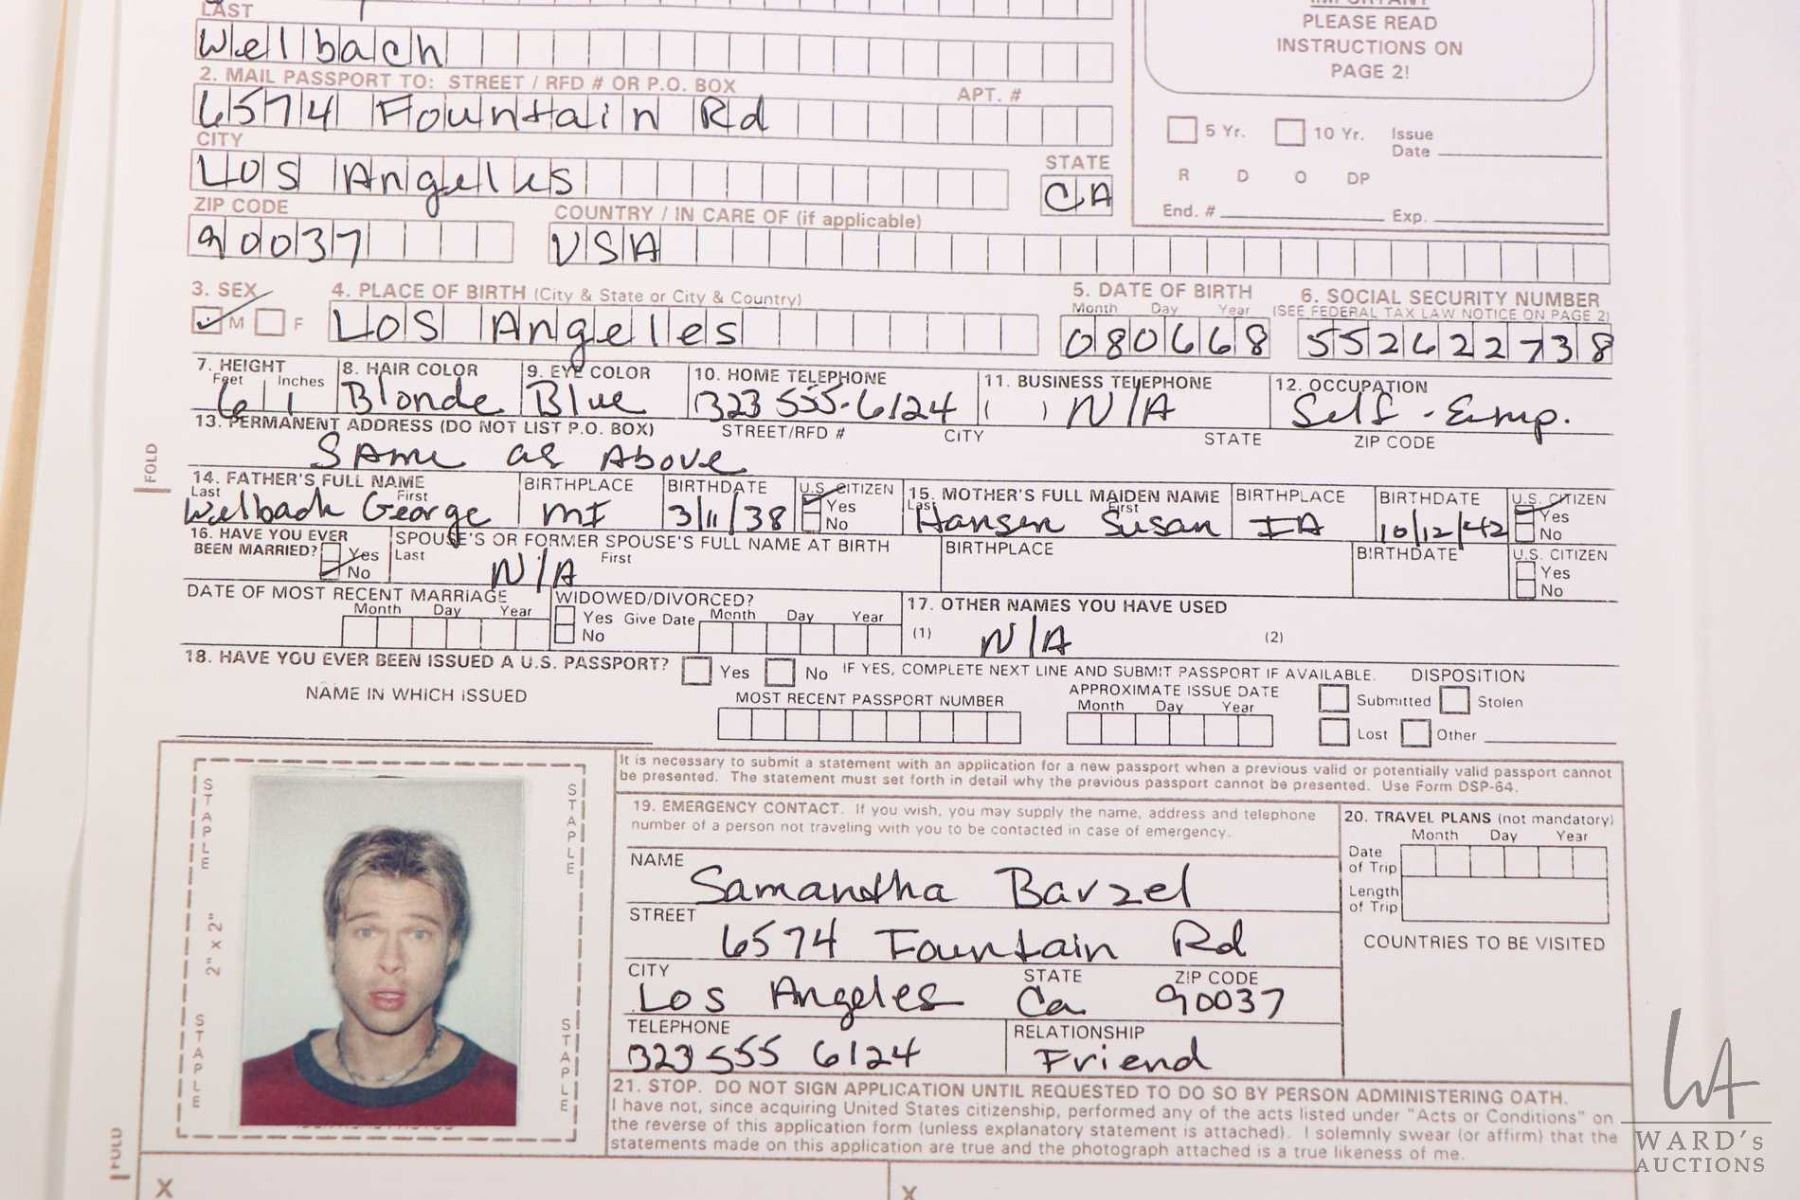 LAST
Wellbach
2. MAIL PASSPORT TO: STREET / RFD # OR P.O. BOX APT. #
6574 Fountain Rd
CITY STATE
Los Angeles CA
ZIP CODE COUNTRY / IN CARE OF (if applicable)
90037 USA
IMPORTANT
PLEASE READ
INSTRUCTIONS ON
PAGE 2!
5 Yr. 10 Yr. Issue Date
R D O DP
End. # Exp.
3. SEX 4. PLACE OF BIRTH (City & State or City & Country) 5. DATE OF BIRTH 6. SOCIAL SECURITY NUMBER
Month Day Year (SEE FEDERAL TAX LAW NOTICE ON PAGE 2)
M F Los Angeles 080668 552622738
7. HEIGHT 8. HAIR COLOR 9. EYE COLOR 10. HOME TELEPHONE 11. BUSINESS TELEPHONE 12. OCCUPATION
Feet Inches
6 1 Blonde Blue (323 555-6124 ( ) N/A Self-Emp.
13. PERMANENT ADDRESS (DO NOT LIST P.O. BOX) STREET/RFD # CITY STATE ZIP CODE
Same as Above
FOLD
14. FATHER'S FULL NAME BIRTHPLACE BIRTHDATE U.S. CITIZEN 15. MOTHER'S FULL MAIDEN NAME BIRTHPLACE BIRTHDATE U.S. CITIZEN
Last First Yes Last First Yes
Welbach George MI 3/11/38 No Hansen Susan IA 10/12/42 No
16. HAVE YOU EVER BEEN MARRIED? SPOUSE'S OR FORMER SPOUSE'S FULL NAME AT BIRTH BIRTHPLACE BIRTHDATE U.S. CITIZEN
Yes Last First Yes
No N/A No
DATE OF MOST RECENT MARRIAGE WIDOWED/DIVORCED? 17. OTHER NAMES YOU HAVE USED
Month Day Year Yes Give Date Month Day Year
No (1) N/A (2)
18. HAVE YOU EVER BEEN ISSUED A U.S. PASSPORT? Yes No IF YES, COMPLETE NEXT LINE AND SUBMIT PASSPORT IF AVAILABLE. DISPOSITION
NAME IN WHICH ISSUED MOST RECENT PASSPORT NUMBER APPROXIMATE ISSUE DATE Submitted Stolen
Month Day Year
Lost Other
It is necessary to submit a statement with an application for a new passport when a previous valid or potentially valid passport cannot
be presented. The statement must set forth in detail why the previous passport cannot be presented. Use Form DSP-64.
STAPLE
STAPLE
2" x 2"
STAPLE
STAPLE
19. EMERGENCY CONTACT. If you wish, you may supply the name, address and telephone
number of a person not traveling with you to be contacted in case of emergency.
NAME
Samantha Barzel
STREET
6574 Fountain Rd
CITY STATE ZIP CODE
Los Angeles Ca 90037
TELEPHONE RELATIONSHIP
323 555 6124 Friend
20. TRAVEL PLANS (not mandatory)
Month Day Year
Date of Trip
Length of Trip
COUNTRIES TO BE VISITED
21. STOP. DO NOT SIGN APPLICATION UNTIL REQUESTED TO DO SO BY PERSON ADMINISTERING OATH.
I have not, since acquiring United States citizenship, performed any of the acts listed under "Acts or Conditions" on
the reverse of this application form (unless explanatory statement is attached). I solemnly swear (or affirm) that the
statements made on this application are true and the photograph attached is a true likeness of me.
FOLD
X X
WA
WARD's
AUCTIONS